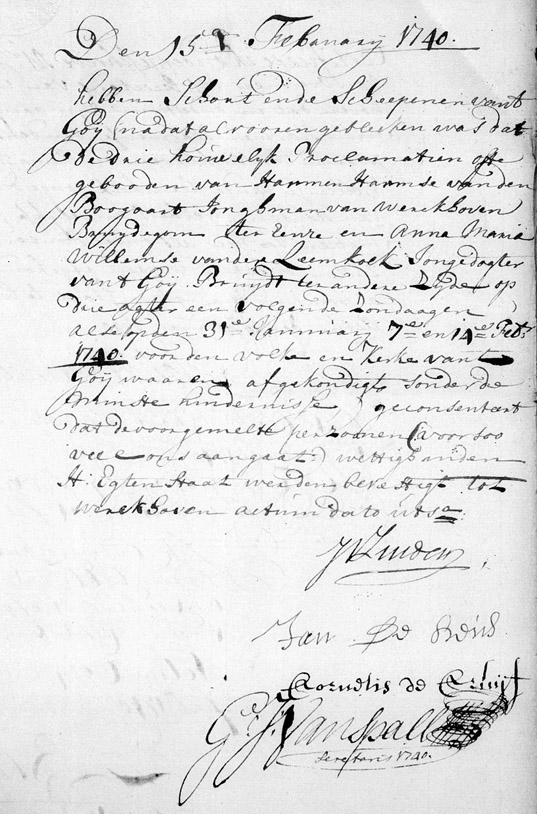 Den 15e February 1740.
hebben Schout ende Scheepenen van't
Goij (nadat alvooren gebleeken was dat
de drie houwelyk Proclamatien ofte
gebooden van Harmen Harmse van den
Boogaart Jonghman van Werckhoven
Bruydegom ter eenre en Anna Maria
Willemse van der Leemkolk Jongedogter
van't Goij Bruijdt ter andere Zijde op
drie agter een volgende Zondaagen
als op den 31e January 7e en 14e Feb:
1740. voor den volke en Kerke van't
Goij waaren afgekondigt sonder de
minste hindernisse) geconsenteert
dat de voorgemelte perzoonen (voor soo
veel ons aangaat) wettigh in den
H: Egten Staat werden bevestigt tot
Werckhoven actum dato ut sa
Jan De
Cornelis de
G. J. Van Spall
Secretaris 1740.